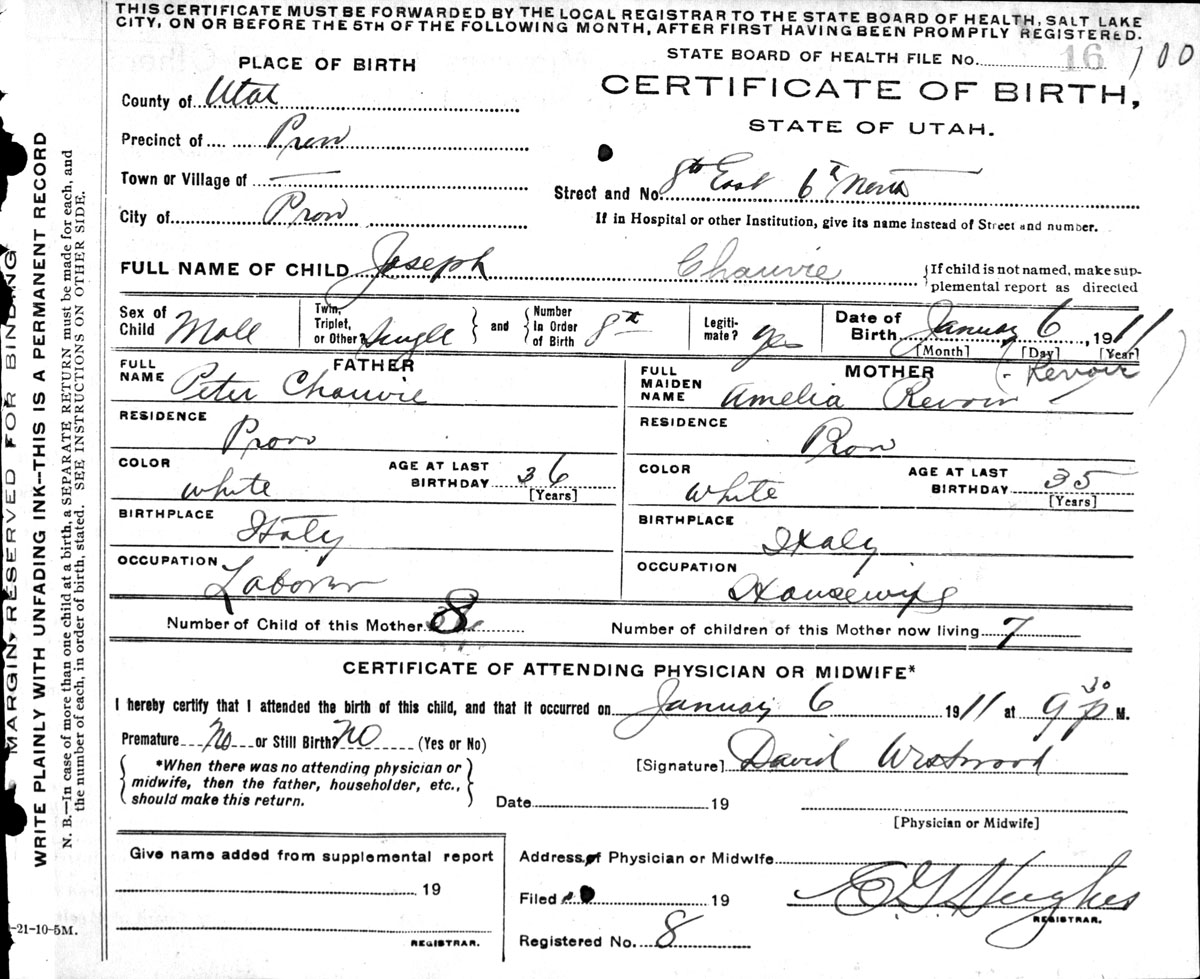 THIS CERTIFICATE MUST BE FORWARDED BY THE LOCAL REGISTRAR TO THE STATE BOARD OF HEALTH, SALT LAKE
CITY, ON OR BEFORE THE 5TH OF THE FOLLOWING MONTH, AFTER FIRST HAVING BEEN PROMPTLY REGISTERED.
STATE BOARD OF HEALTH FILE No. 16 100
PLACE OF BIRTH
CERTIFICATE OF BIRTH,
STATE OF UTAH.
County of Utah
Precinct of Provo
Town or Village of
City of Provo
Street and No. 8th East 6th North
If in Hospital or other Institution, give its name instead of Street and number.
FULL NAME OF CHILD Joseph Chauvie
{If child is not named, make supplemental report as directed
Sex of Child Male
Twin, Triplet, or Other? Single } and { Number In Order of Birth 8th
Legitimate? yes
Date of Birth January 6, 1911
[Month] [Day] [Year]
FATHER
FULL NAME Peter Chauvie
RESIDENCE Provo
COLOR white AGE AT LAST BIRTHDAY 36 [Years]
BIRTHPLACE Italy
OCCUPATION Laborer
MOTHER (-Revoir)
FULL MAIDEN NAME Amelia Revoir
RESIDENCE Provo
COLOR White AGE AT LAST BIRTHDAY 35 [Years]
BIRTHPLACE Italy
OCCUPATION Housewife
Number of Child of this Mother 8 Number of children of this Mother now living 7
CERTIFICATE OF ATTENDING PHYSICIAN OR MIDWIFE*
I hereby certify that I attended the birth of this child, and that it occurred on January 6 1911 at 9 30 p M.
Premature No or Still Birth? NO (Yes or No)
{ *When there was no attending physician or
midwife, then the father, householder, etc.,
should make this return. }
[Signature] David Westwood
Date 19
[Physician or Midwife]
Give name added from supplemental report
19
REGISTRAR.
Address of Physician or Midwife
Filed 19 E G Hughes
REGISTRAR.
Registered No. 8
-21-10-5M.
MARGIN RESERVED FOR BINDING
WRITE PLAINLY WITH UNFADING INK--THIS IS A PERMANENT RECORD
N. B.—In case of more than one child at a birth, a SEPARATE RETURN must be made for each, and
the number of each, in order of birth, stated. SEE INSTRUCTIONS ON OTHER SIDE.